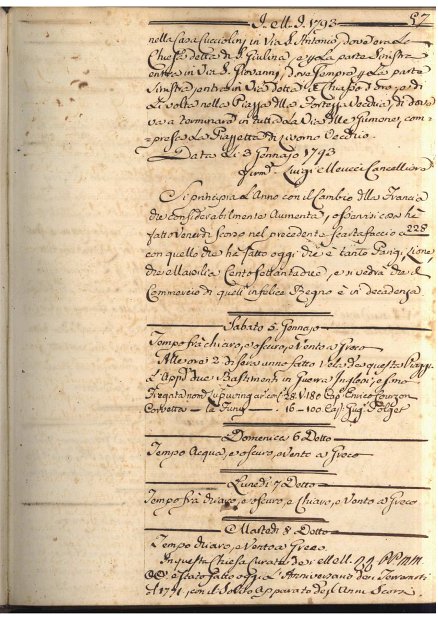 J. M. J. 1793 97
nella Casa Succiolini in Via S. Antonio, dove ora Le
Chiesa detta di S. Giulina, e p. La parte Sinistra
entra in Via S. Giovanni, dove sempre p. La parte
Sinistra entra in Via detta il Chiasso di
Li volta nella Piazza della Fortezza Vecchia, di dove
va a terminare in tutta La Via delle Simone, com-
presa La Piazzetta di Livorno Vecchio.
Data Li 3 Gennajo 1793
firm. Luigi Meucci Cancelliere
Si principia L'Anno con il Cambio della Francia
che considerabilmente Aumenta, e
fatto Venerdì Scorso nel precedente Scartafaccio a 228
con quello che ha fatto oggi che è tanto Parigi, Lione
che Marsilia Cento Settantadue, e si vedrà che il
Commercio di quell'infelice Regno è in decadenza
Sabato 5 Gennajo
Tempo frà chiaro, e oscuro, e Vento a Greco
Alle ore 2 di sera anno fatto Vela da questa Piagg.
due Bastimenti in Guerra Inglesi, e sono
Fregata nom. 28. 180 Cap. Enrico Curzon
Corvetta — La Fury — 16 - 100 Cap.
Domenica 6 Detto
Tempo Acqua, e oscuro, e Vento a Greco
Lunedì 7 Detto
Tempo frà chiaro, e oscuro, e Chiaro, e Vento a Greco
Martedì 8 Detto
Tempo chiaro, e Vento a Greco
In questa Chiesa Curata de
è stato fatto oggi L'Anniversario dei Terremoti
d. 1742, con il Solito Apparato degl'Anni Scorsi